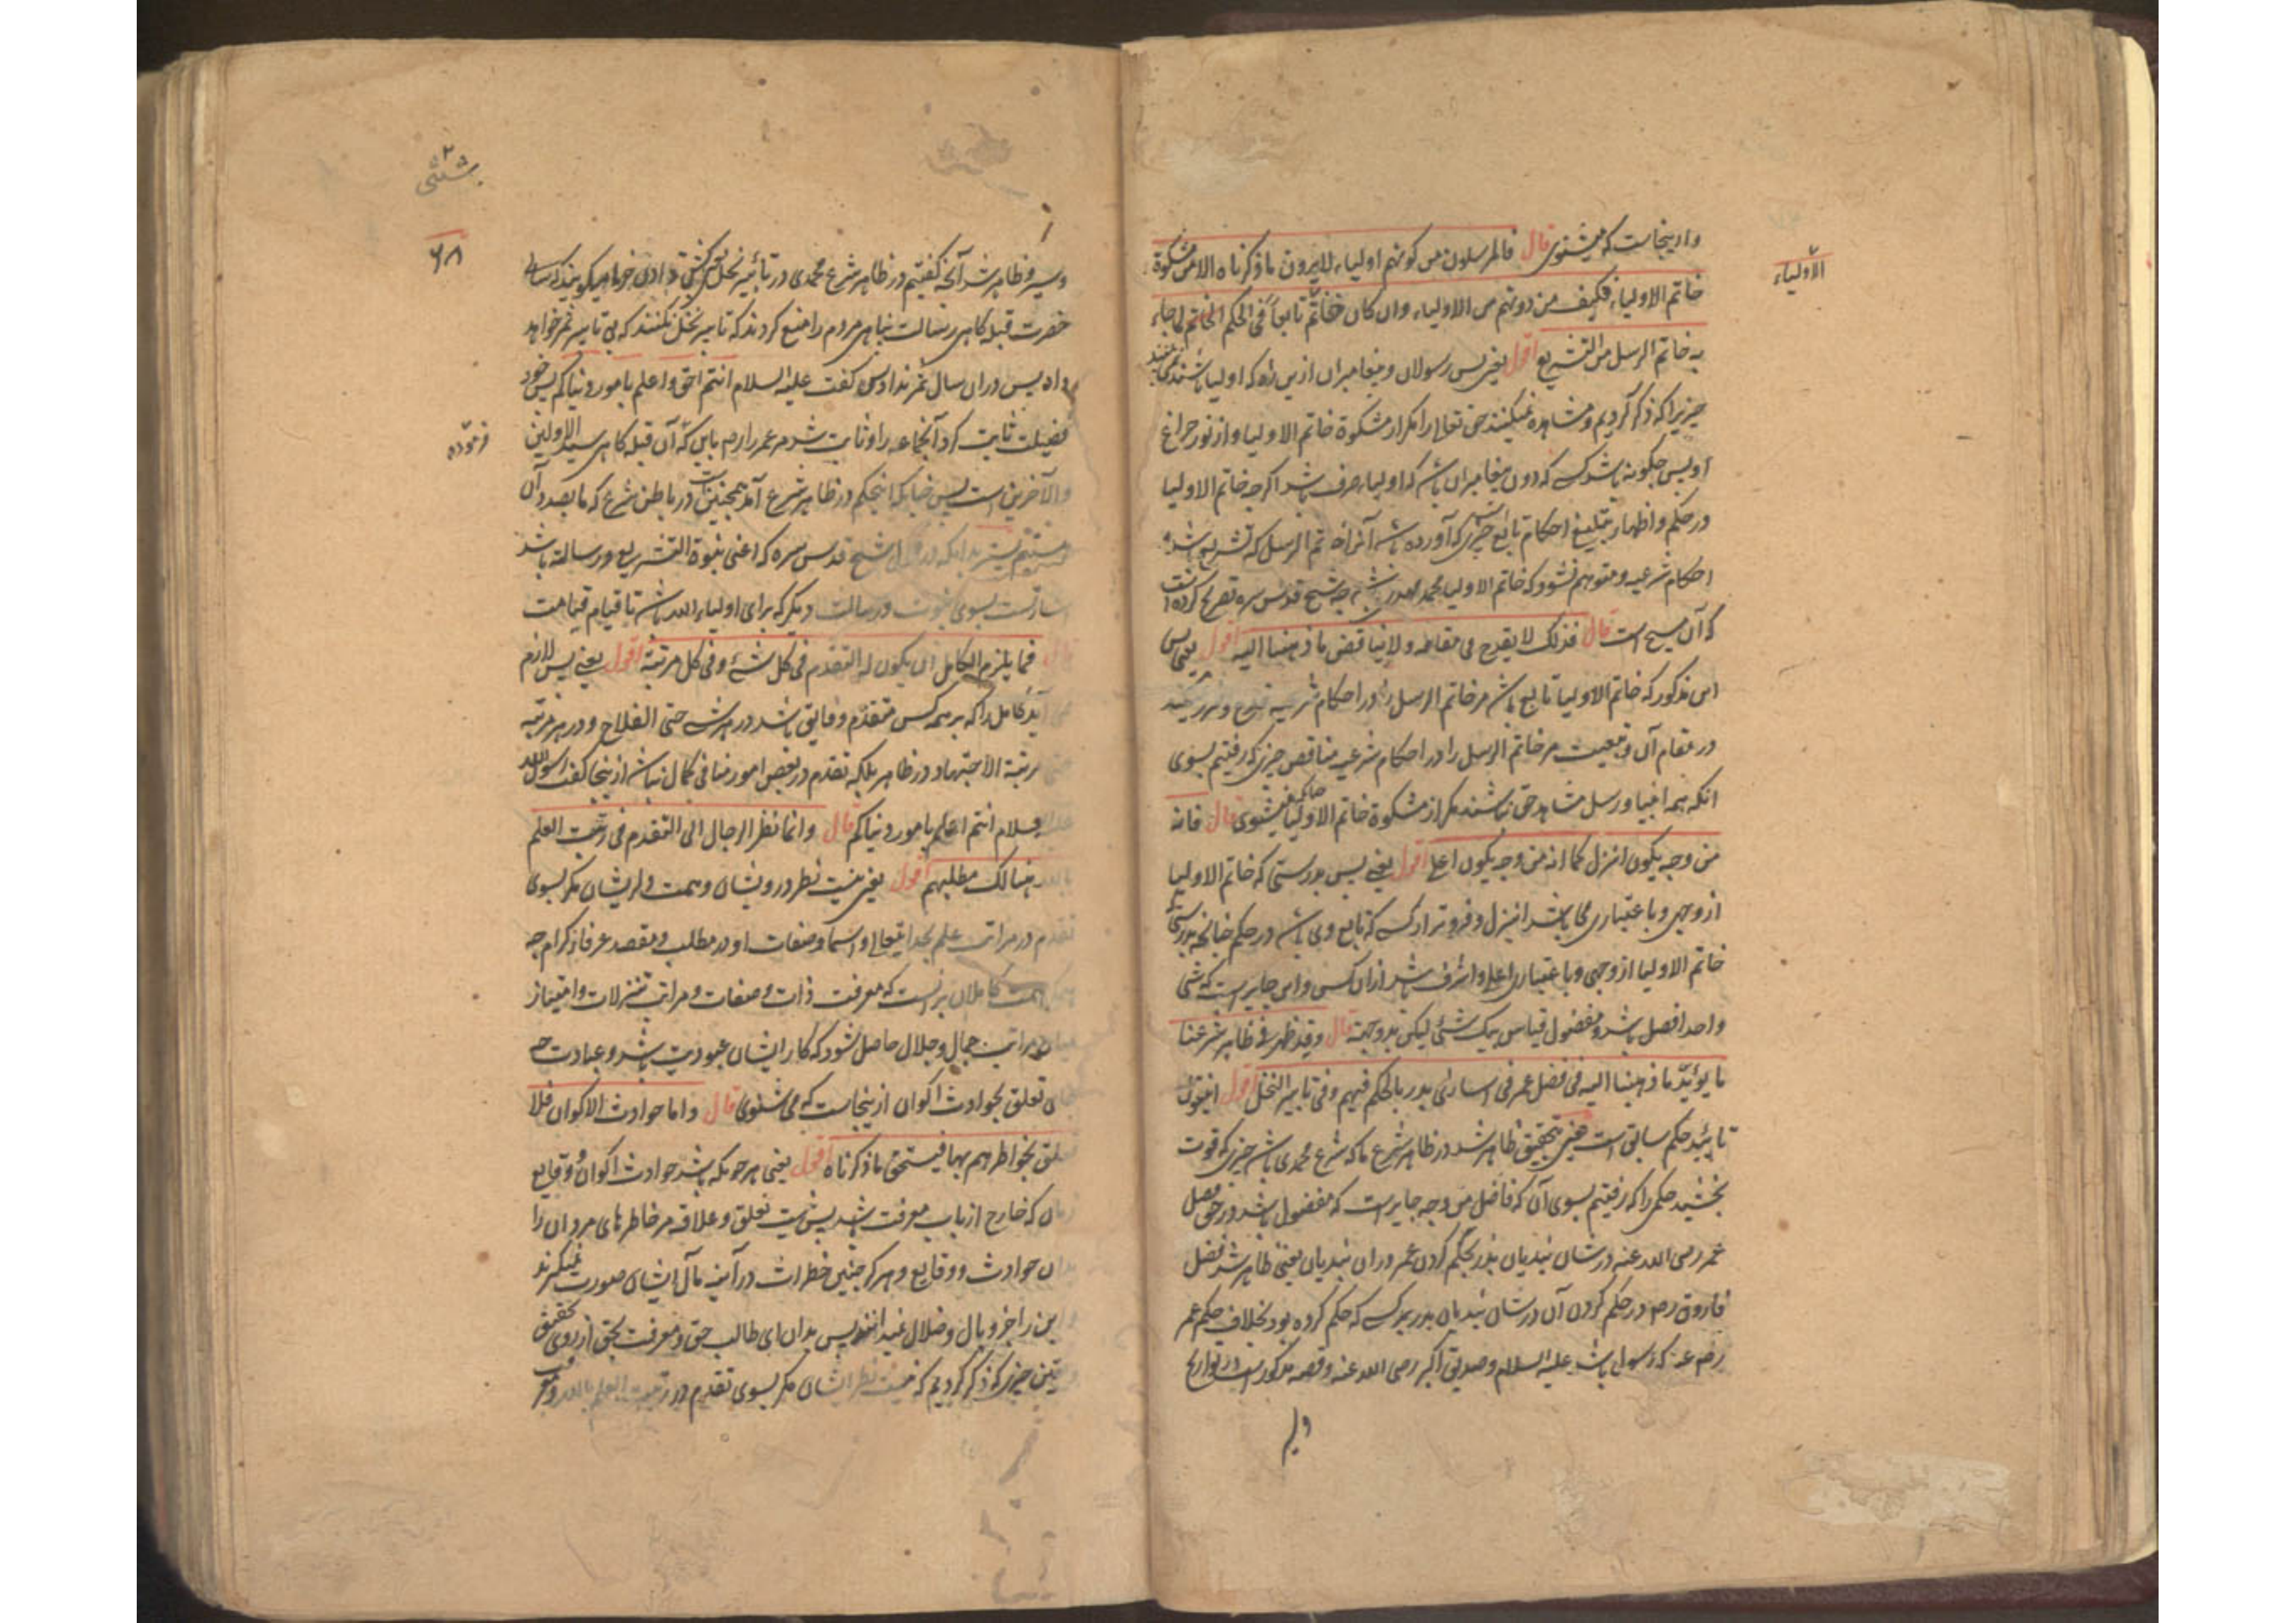 الأولياء
وازینجاست که میشنوی قال فالمرسلون من کونهم اولیاء لا یرون ما ذکرناه الا من مشکوة
خاتم الاولیاء فکیف من دونهم من الاولیاء وان کان خاتم تابعاً فی الحکم لما جاء
به خاتم الرسل من التشریع اقول یعنی پس رسولان و پیغامبران ازین راه که اولیا باشند
چیزیرا که ذکر کردیم و مشاهده نمیکنند حق تعالی را مگر از مشکوة خاتم الاولیا و از نور چراغ
او پس چگونه باشد کسی که دون پیغامبران باشد که اولیاء صرف باشد اگرچه خاتم الاولیا
در حکم و اظهار تبلیغ احکام تابع چیزی که آورده باشد آنرا خاتم الرسل که تشریع باشد و
احکام شرعیه و متوهم نشود که خاتم الاولیا محمد مهدی باشد چه شیخ قدس سره تصریح کرده است
که آن مسیح است قال فذلک لا یقدح فی مقامه ولا یناقض ما ذهبنا الیه اقول یعنی پس
این مذکور که خاتم الاولیا تابع باشد مر خاتم الرسل را در احکام شرعیه قدح و ضرر نمیکند
در مقام آن و تبعیت مر خاتم الرسل را در احکام شرعیه مناقض چیزی که رفتیم بسوی
انکه همه انبیا و رسل مشاهد حق نباشند مگر از مشکوة خاتم الاولیا چنانکه میشنوی قال فانه
من وجه یکون انزل کما انه من وجه یکون اعلی اقول یعنی پس بدرستی که خاتم الاولیا
از وجهی و باعتباری می باشد انزل و فروتر از کسی که تابع وی باشد در حکم چنانچه بدرستی که
خاتم الاولیا از وجهی و باعتباری اعلی و اشرف باشد ازان کس و این جایز است که شی
واحد افضل باشد و مفضول قیاس بیک شئ لیکن بدو جهة قال وقد ظهر فی ظاهر شرعنا
ما یؤیّد ما ذهبنا الیه فی فضل عمر فی اساری بدر بالحکم فیهم وفی تابیر النخل اقول اینقول
تائید حکم سابق است یعنی بتحقیق ظاهر شد در ظاهر شرع ما که شرع محمدی باشد چیزی که قوت
بخشید حکمی را که رفتیم بسوی آن که فاضل من وجه جایز است که مفضول باشد در حق فضل
عمر رضی الله عنه در شان بندیان بدر بحکم کردن عمر دران بندیان یعنی ظاهر شد فضل
فاروق رضه در حکم کردن آن در شان بندیان بدر بر کسی که حکم کرده بود بخلاف حکم عمر
رضه عنه که رسول باشد علیه السلام و صدیق اکبر رضی الله عنه و قصه مذکور است در تواریخ
و سیر و ظاهر شد آنچه گفتیم در ظاهر شرع محمدی در تأبیر نخل
حضرت قبله گاهی رسالت پناهی مردم را منع کردند که تابیر نخل نکنند که بی تابیر ثمر خواهد
داد پس دران سال ثمر نداد پس گفت علیه السلام انتم احق واعلم بامور دنیاکم پس خود
فرموده
فضیلت ثابت کرد آنجماعه را و ثابت شد مر عمر را رضه باین که آن قبله گاهی سید الاولین
والآخرین است پس چنانکه اینحکم در ظاهر شرع آمد همچنین است در باطن شرع که ما بصدد آن
هستیم بدانکه در قول شیخ قدس سره که اعنی نبوة التشریع ورسالته باشد
اشارتست بسوی نبوت و رسالت دیگر که برای اولیاء الله باشد تا قیام قیامت
قال فما یلزم الکامل ان یکون له التقدم فی کل شئ وفی کل مرتبة اقول یعنی پس لازم
نمی آید کامل را که بر همه کس متقدم و فایق باشد در هر شئ حتی الفلاح و در هر مرتبه
حتی مرتبة الاجتهاد در ظاهر بلکه تقدم در بعض امور منافی کمال نباشد ازینجا گفت رسول الله
علیه السلام انتم اعلم بامور دنیاکم قال وانما نظر الرجال الی التقدم فی رتبت العلم
بالله هنالک مطلبهم اقول یعنی نیست نظر درویشان و همت دل ایشان مگر بسوی
تقدم در مراتب علم بخدایتعالی و اسما و صفات او در مطلب و مقصد عرفا ذکرام چه
همگی همت کاملان برانست که معرفت ذات و صفات و مراتب تنزلات و امتیاز
میان مراتب جمال و جلال حاصل شود که کار ایشان عبودیت باشد و عبادت چه
شان تعلق بحوادث اکوان ازینجاست که می شنوی قال واما حوادث الاکوان فلا
تعلق بخواطرهم بها فیتحقق ما ذکرناه اقول یعنی هر چیزیکه باشد حوادث اکوان و وقایع
زمان که خارج از باب معرفت باشد پس نیست تعلق و علاقه مر خاطرهای مردان را
بدان حوادث و وقایع و هرگز چنین خطرات در آینه مآل ایشان صورت نمیگیرند
و این را جز وبال و ضلال نمیدانند پس بدان ای طالب حق و معرفت بحق از روی تحقیق
و یقین چیزی که ذکر کردیم که نیست نظر ایشان مگر بسوی تقدم در رتبت العلم بالله